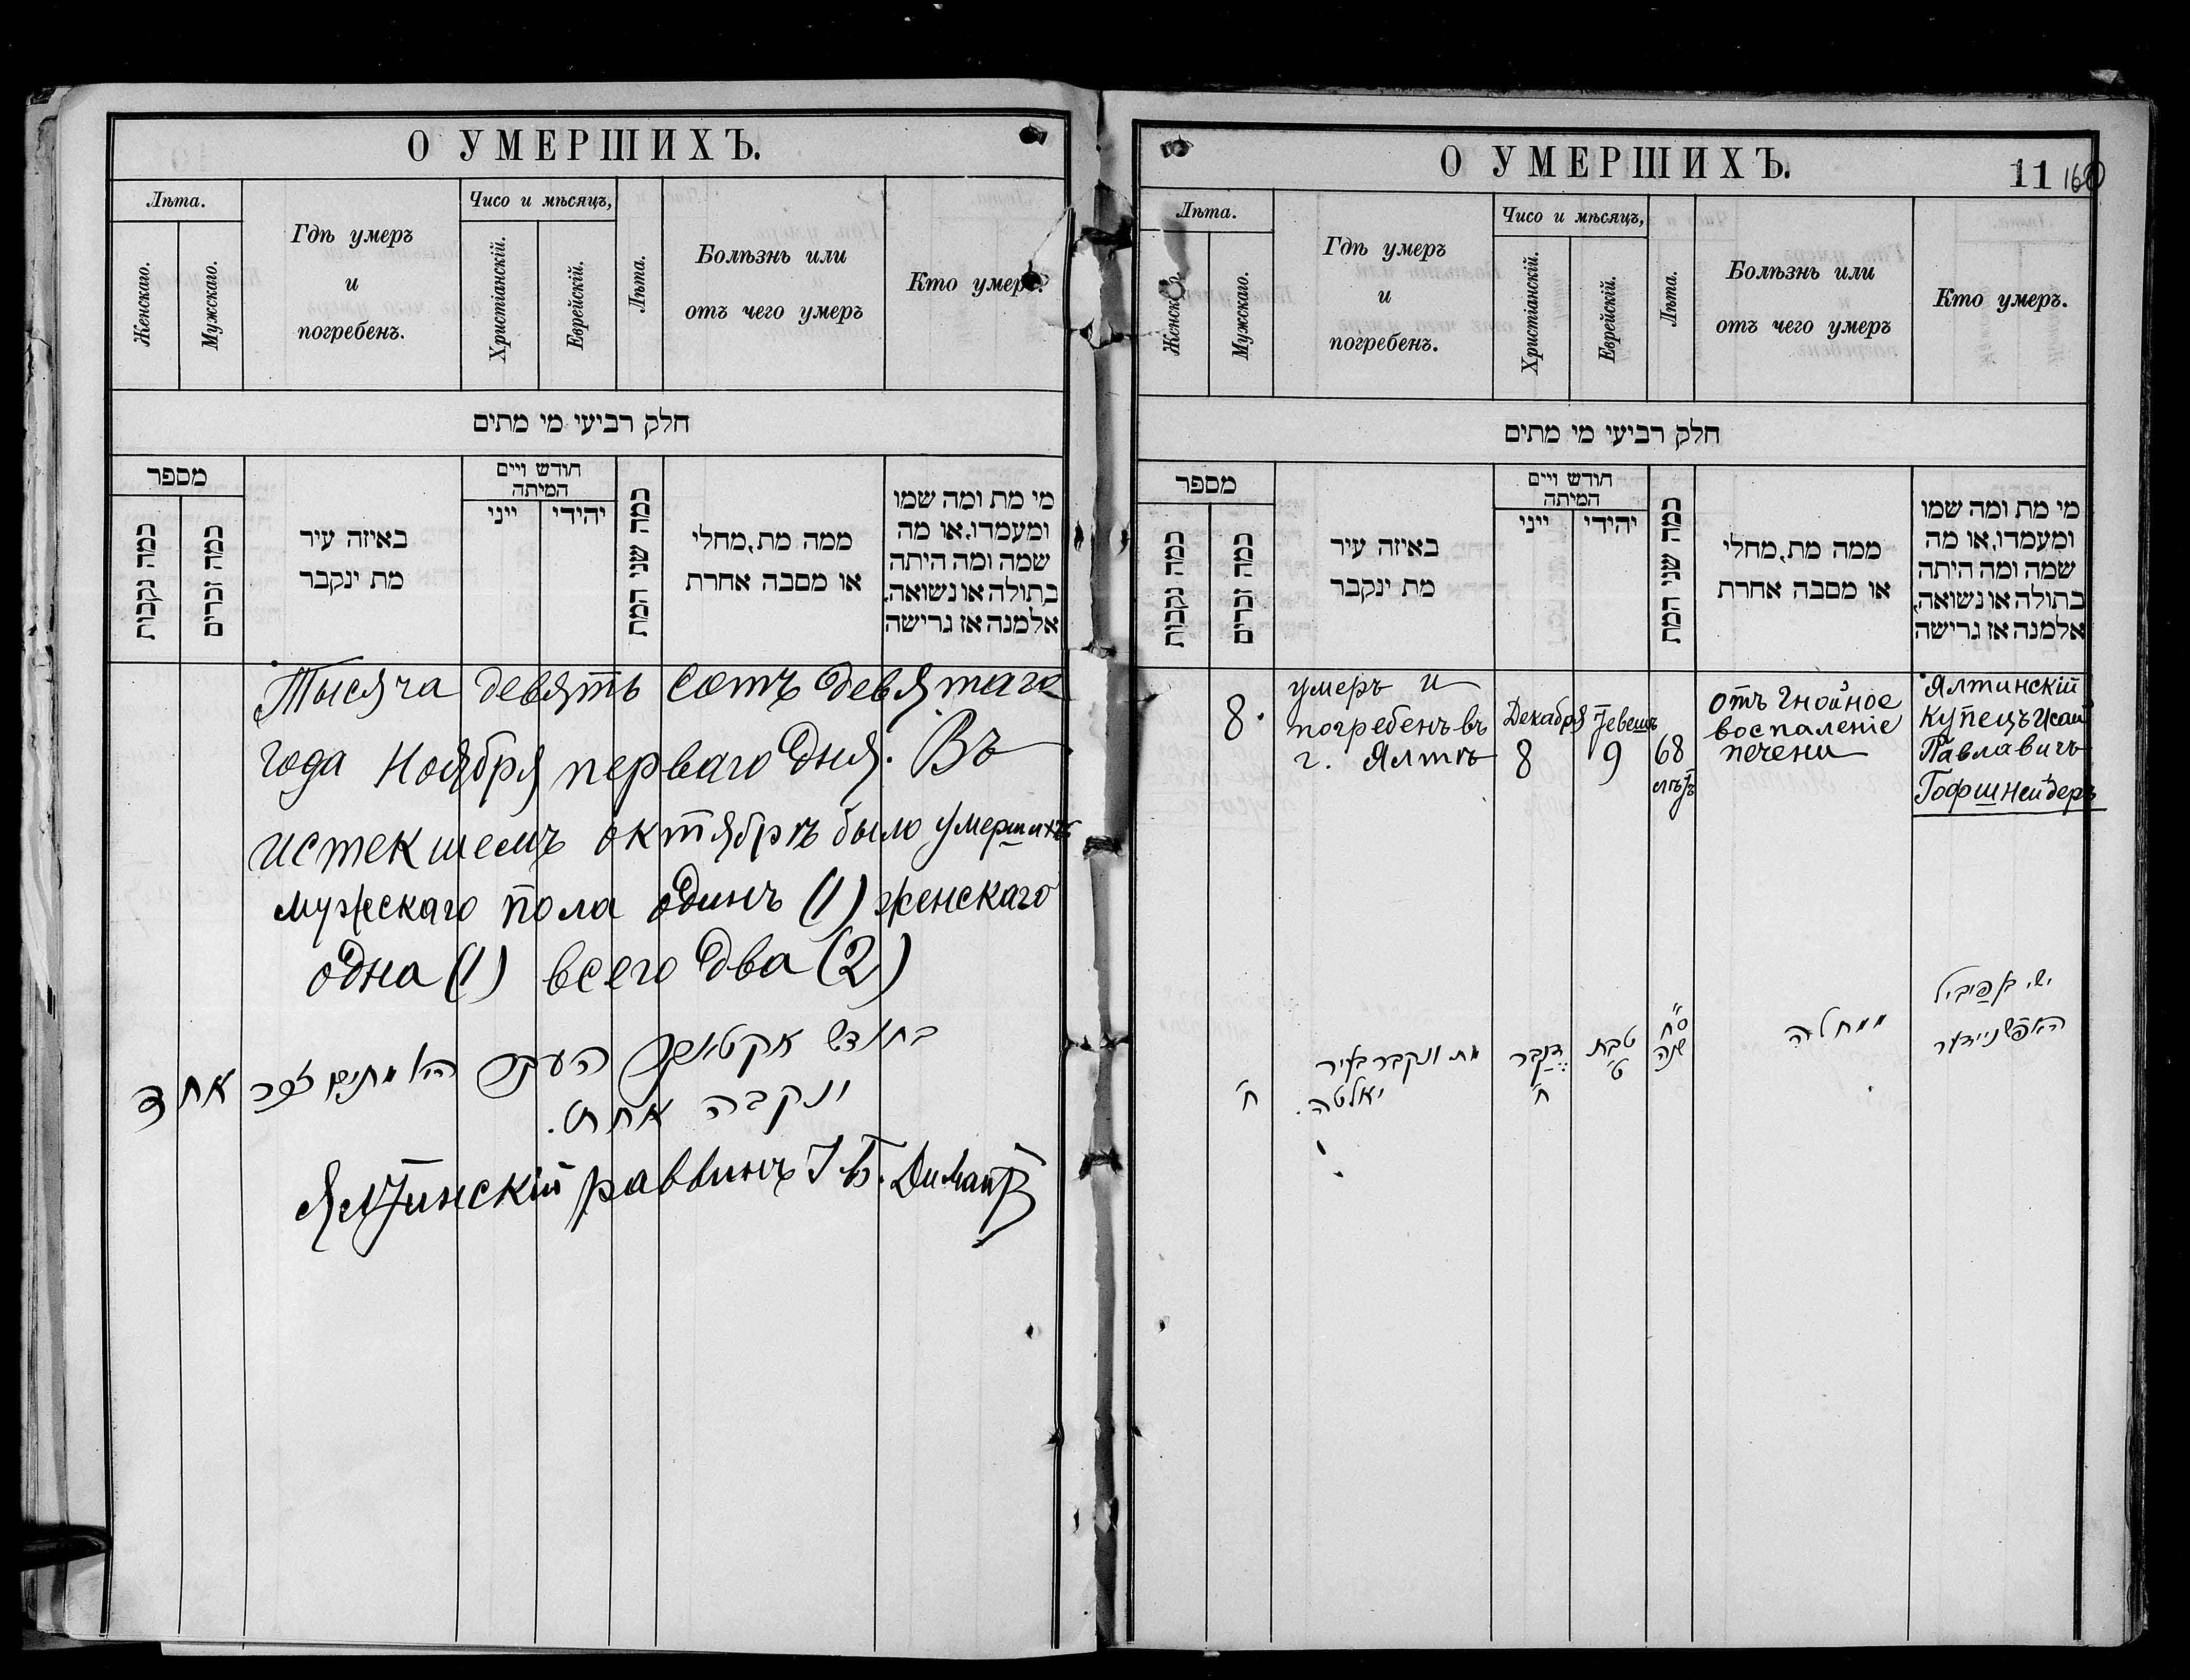 О УМЕРШИХЪ.
Лѣта.
Женскаго.
Мужскаго.
Гдѣ умеръ
и
погребенъ.
Чисо и мѣсяцъ,
Христіанскій.
Еврейскій.
Лѣта.
Болѣзнь или
отъ чего умеръ
Кто умеръ.
חלק רביעי מי מתים
מספר
כמה נקבות
כמה זכרים
באיזה עיר
מת ינקבר
חודש ויים
המיתה
ייני
יהידי
כמה שני המת
ממה מת, מחלי
או מסבה אחרת
מי מת ומה שמו
ומעמדו, או מה
שמה ומה היתה
בתולה או נשואה,
אלמנה אז גרישה
Тысяча девять сотъ девятаго
года Ноября перваго дня. Въ
истекшемъ октябрѣ было умершихъ
мужскаго пола одинъ (1) женскаго
одна (1) всего два (2)
בחודש אקטאבר העבר היו מתים זכר אחד
ונקבה אחת.
Ялтинскій раввинъ І Б. Димантъ
О УМЕРШИХЪ.
11 160
Лѣта.
Женскаго.
Мужскаго.
Гдѣ умеръ
и
погребенъ.
Чисо и мѣсяцъ,
Христіанскій.
Еврейскій.
Лѣта.
Болѣзнь или
отъ чего умеръ
Кто умеръ.
חלק רביעי מי מתים
מספר
כמה נקבות
כמה זכרים
באיזה עיר
מת ינקבר
חודש ויים
המיתה
ייני
יהידי
כמה שני המת
ממה מת, מחלי
או מסבה אחרת
מי מת ומה שמו
ומעמדו, או מה
שמה ומה היתה
בתולה או נשואה,
אלמנה אז גרישה
8.
умеръ и
погребенъ въ
г. Ялтѣ
Декабря
8
Тевешъ
9
68
лѣтъ
отъ гнойное
воспаленіе
печени
Ялтинскій
купецъ Исай
Павлавичъ
Гофшнейдеръ
ח'
מת ונקבר בעיר
יאלטה.
דצבר
ח'
טבת
ט'
ס"ח
שנה
ממחלה
ישי בן פייביל
האפשניידער